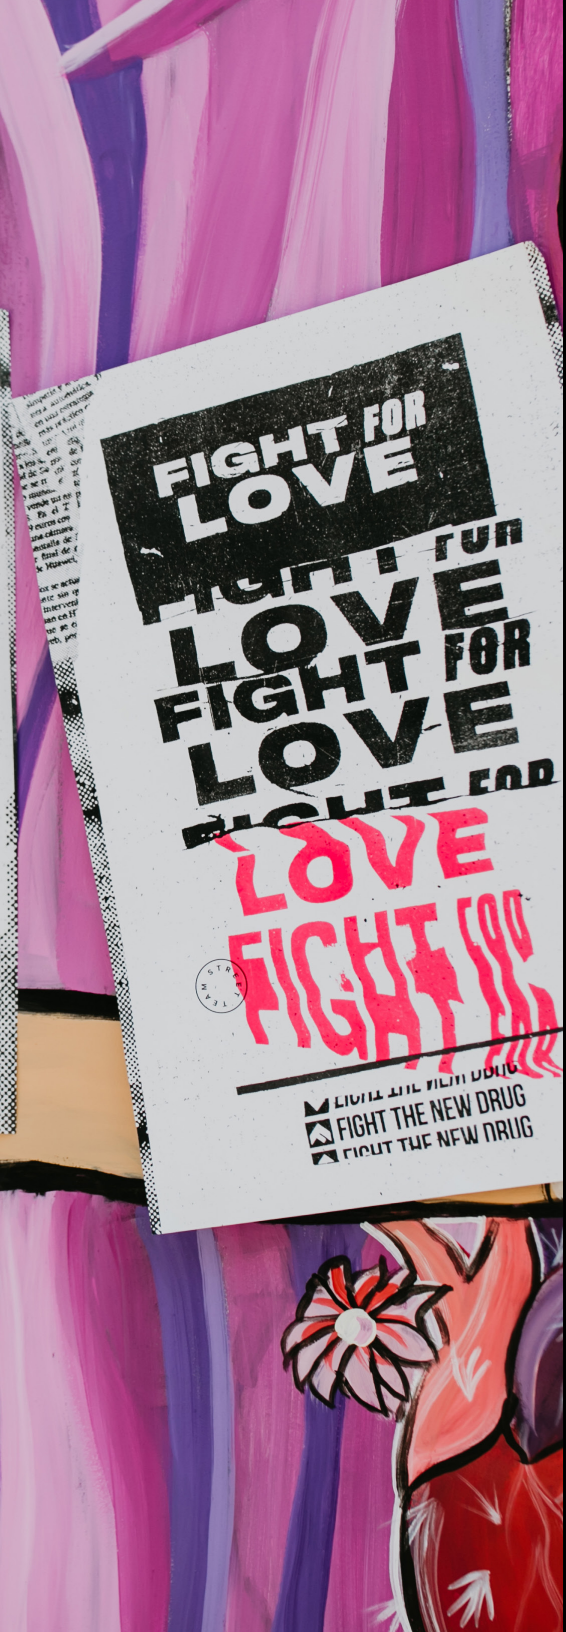 FIGHT FOR
LOVE
FIGHT FOR
LOVE
FIGHT FOR
LOVE
FIGHT FOR
LOVE
FIGHT FOR
STREET TEAM
FIGHT THE NEW DRUG
FIGHT THE NEW DRUG
FIGHT THE NEW DRUG